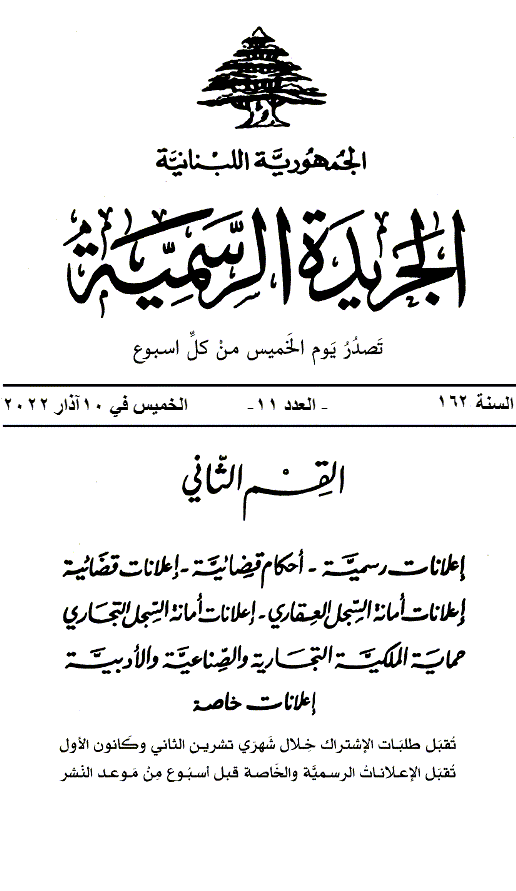 الجُمهُوريَّة اللبْنانيَّة
الجَريدَة الرَّسمِيَّة
تَصدُرُ يَوم الخَميس منْ كلِّ اسبوع
السنة ١٦٢ - العدد ١١- الخميس في ١٠ آذار ٢٠٢٢
القِسْم الثّاني
إعلانات رسميَّة - أحكام قضائيَّة - إعلانات قضائية
إعلانات أمانة السِّجل العقاري - إعلانات أمانة السِّجل التجاري
حماية الملكيَّة التجارية والصِّناعيَّة والأدبيَّة
إعلانات خاصة
تُقبَل طلبَات الإشتراك خِلال شَهرَي تشرين الثاني وكَانون الأول
تُقبَل الإعلاناتُ الرسميَّة والخَاصة قبل أسبُوع مِنْ مَوعد النشر